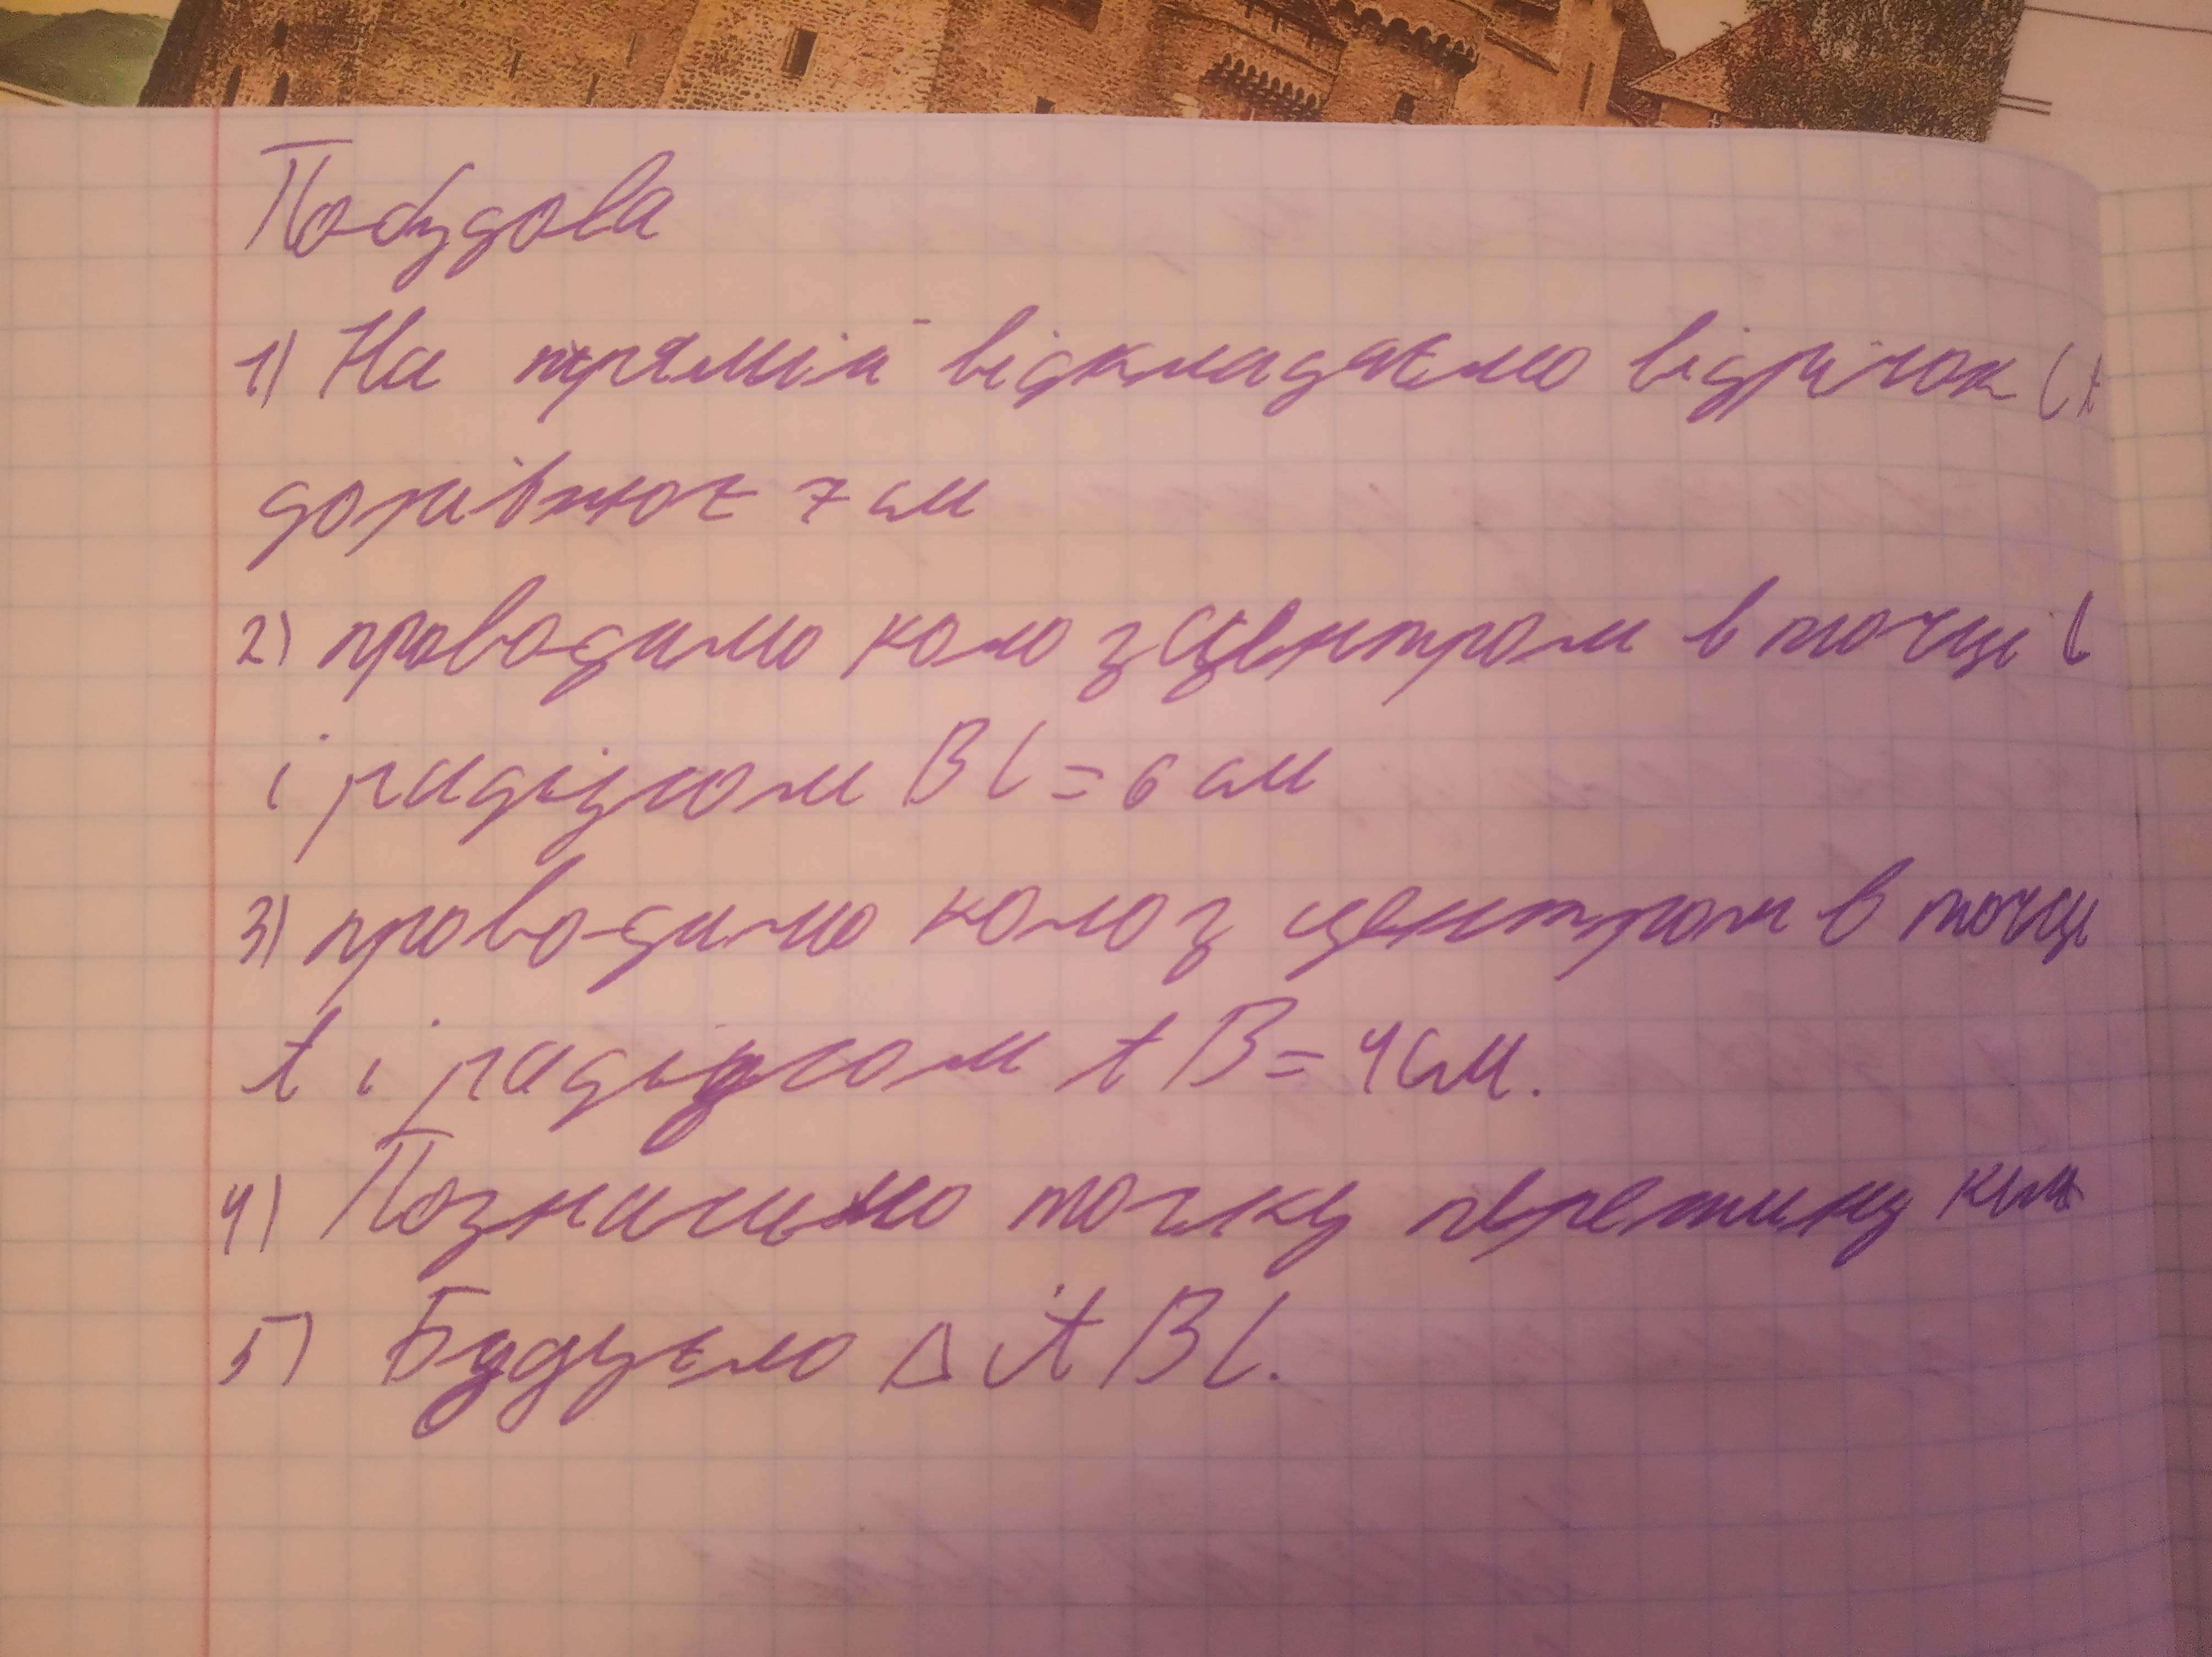 Побудова
1) На прямій відкладаємо відрізок Ct
дорівнює 7 см
2) проводимо коло з центром в точці C
і радіусом BC = 6 см
3) проводимо коло з центром в точці
t і радіусом tB = 4 см.
4) Позначимо точку перетину кіл
5) Будуємо Δ tBC.